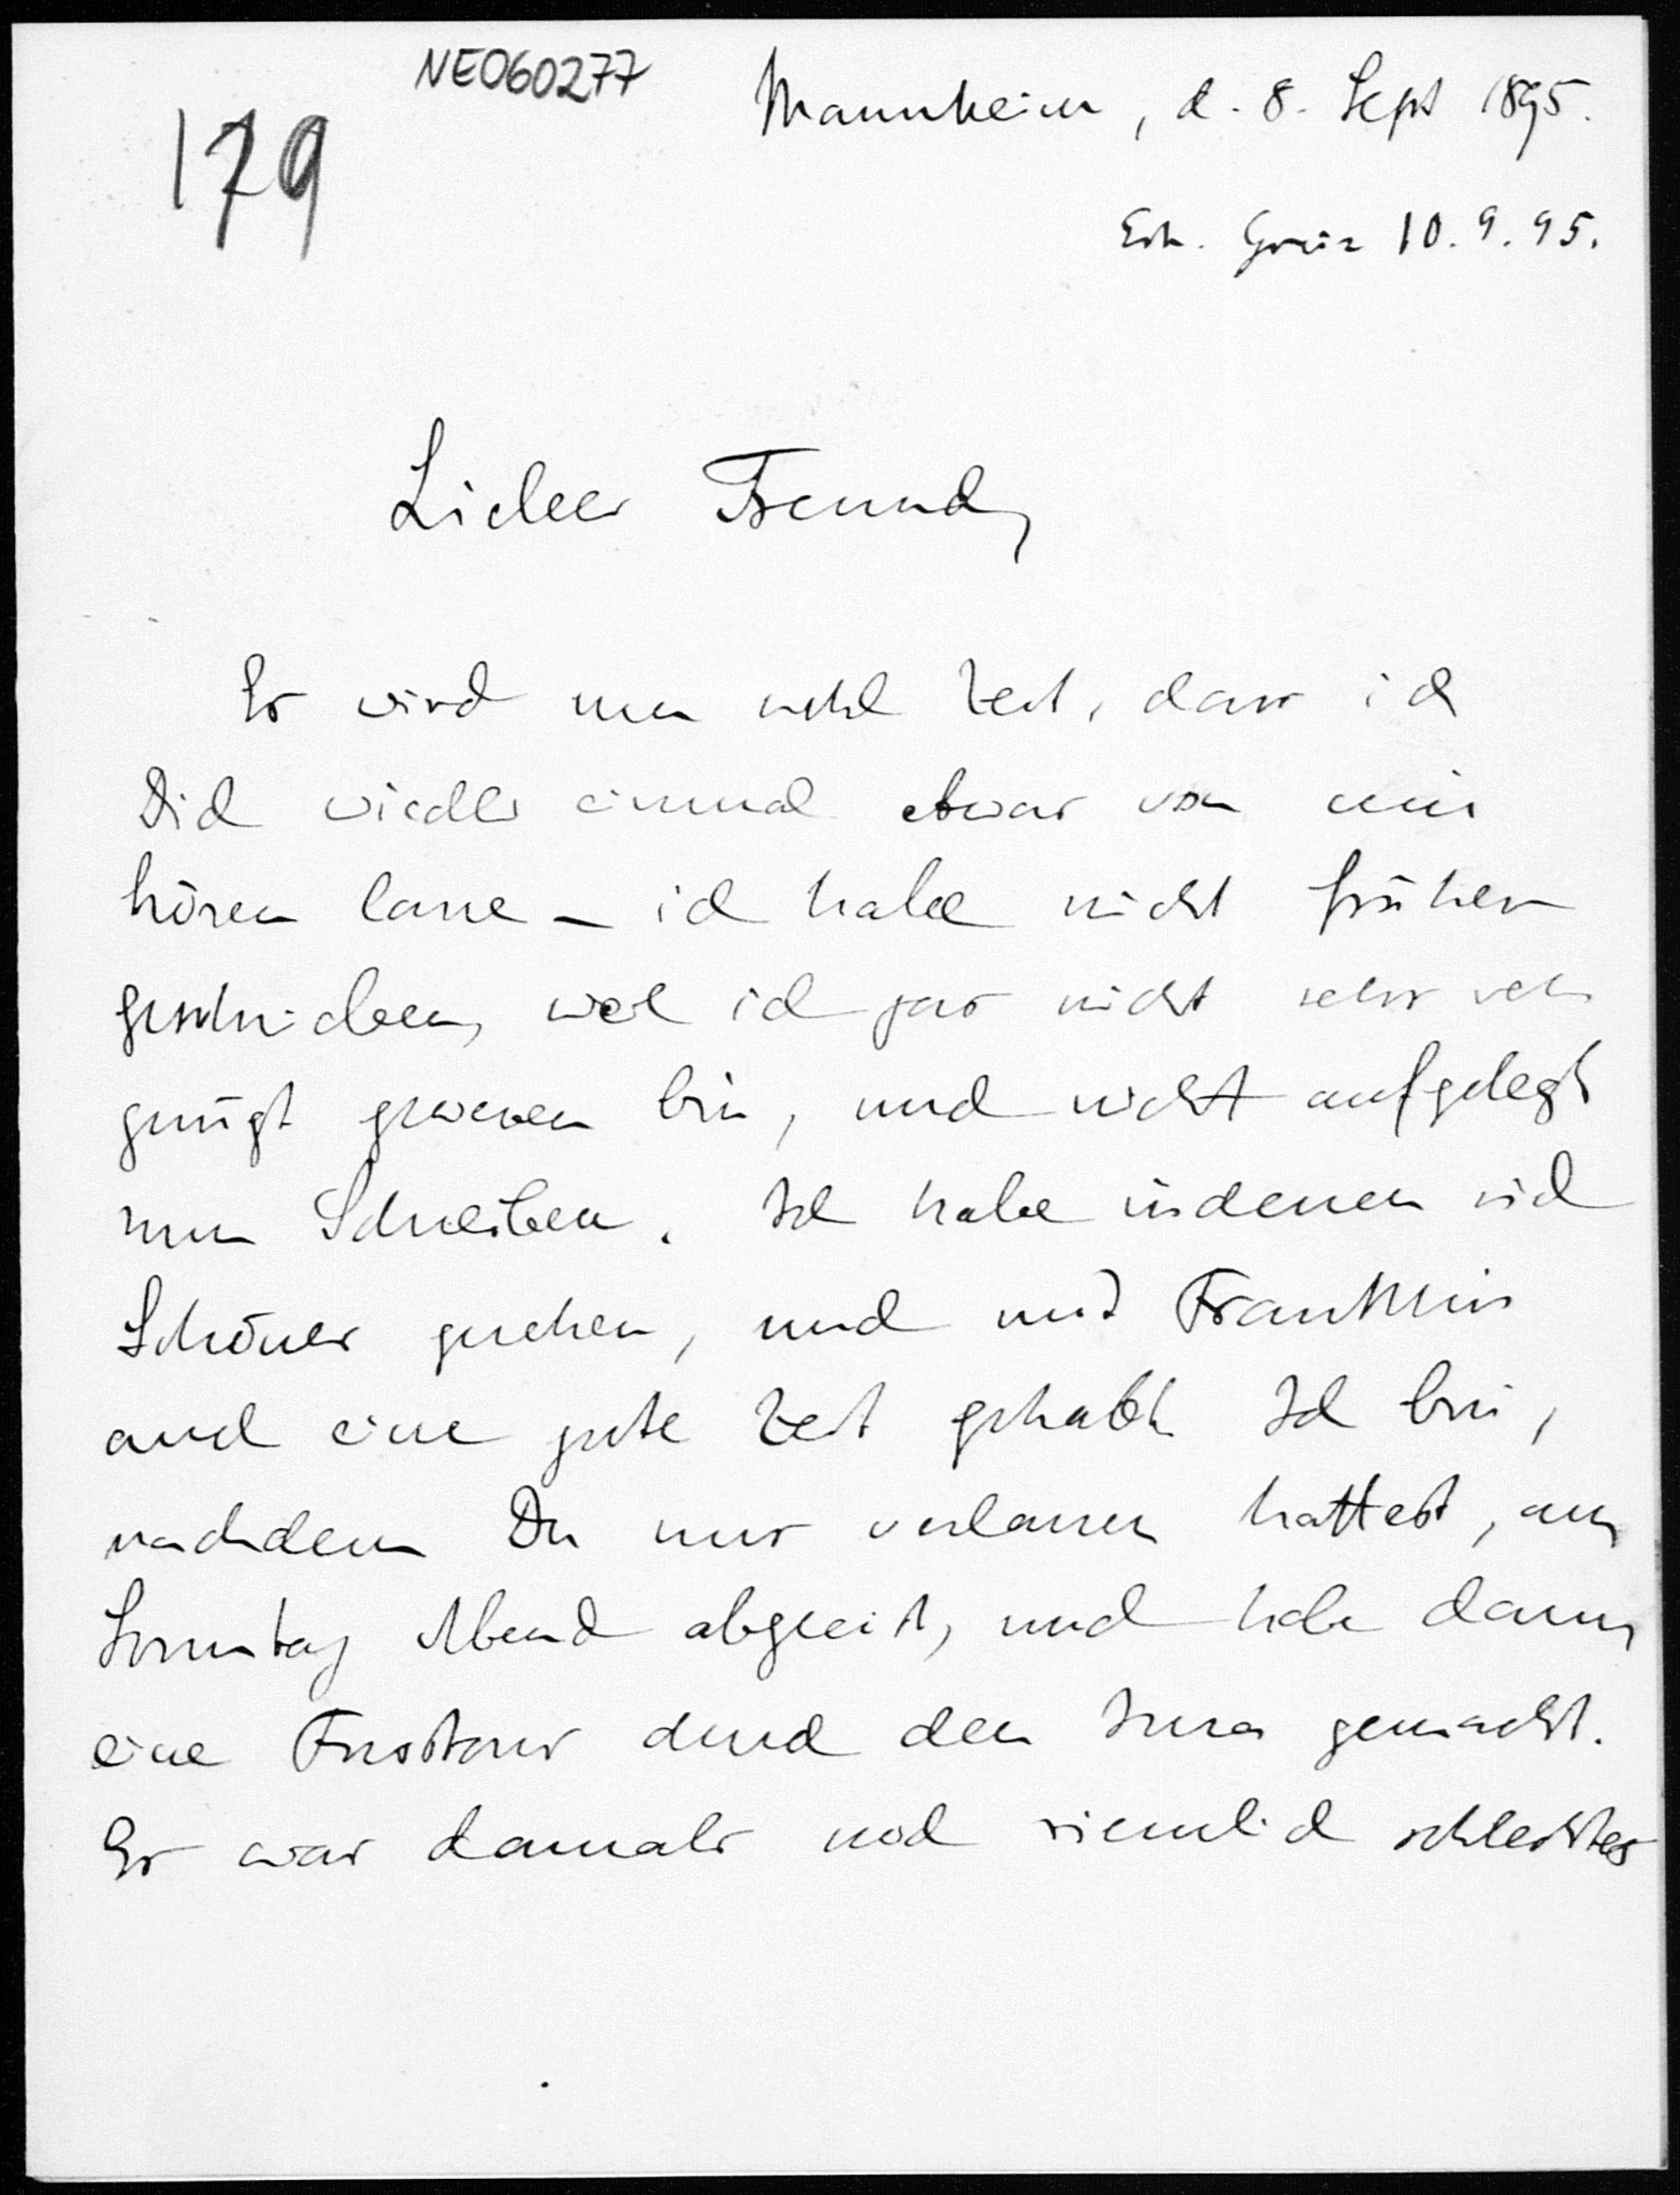 NE060277
179
Mannheim, d. 8. Sept 1895.
Erh. Greiz 10. 9. 95.
Lieber Freund,
Es wird nun wohl Zeit, dass ich
Dich wieder einmal etwas von mir
hören lasse – ich habe nicht früher
geschrieben, weil ich gar nicht sehr ver
gnügt gewesen bin, und nicht aufgelegt
zum Schreiben. Ich habe indessen viel
Schönes gesehen, und mit Fränklin
auch eine gute Zeit gehabt. Ich bin,
nachdem Du uns verlassen hattest, am
Sonntag Abend abgereist, und habe dann
eine Fusstour durch den Jura gemacht.
Es war damals noch ziemlich schlechtes